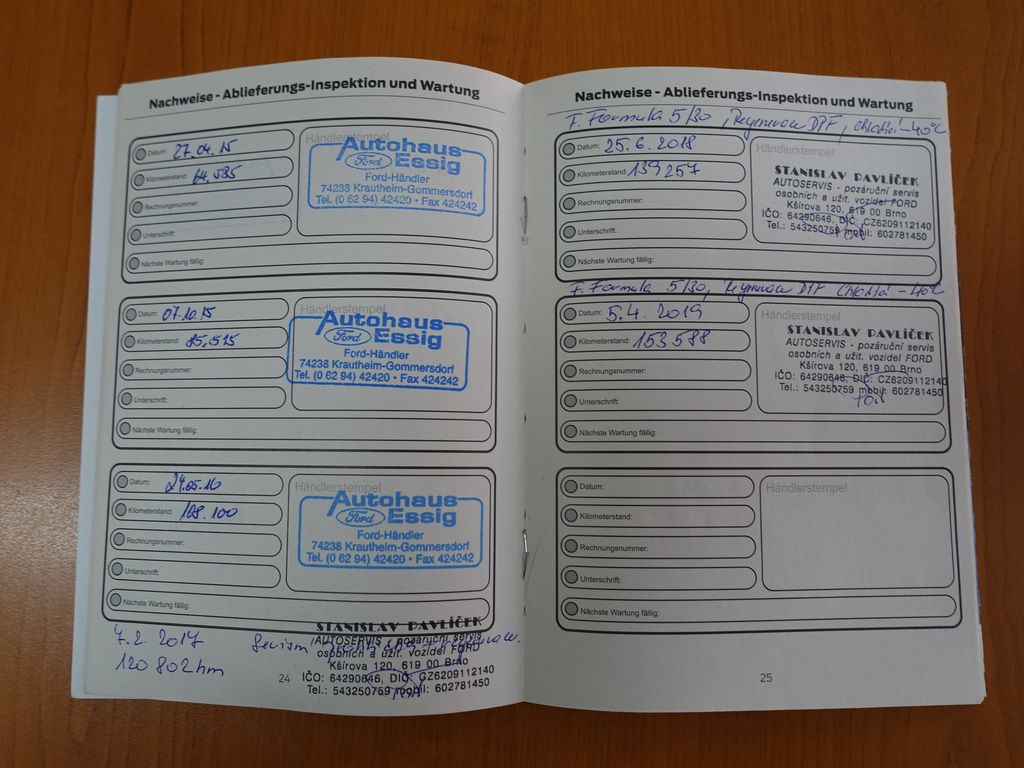 Nachweise - Ablieferungs-Inspektion und Wartung
Datum: 27.04.15
Kilometerstand: 64.585
Rechnungsnummer:
Unterschrift:
Nächste Wartung fällig:
Händlerstempel
Autohaus
Ford Essig
Ford-Händler
74238 Krautheim-Gommersdorf
Tel. (0 62 94) 42420 • Fax 424242
Datum: 07.10.15
Kilometerstand: 85.515
Rechnungsnummer:
Unterschrift:
Nächste Wartung fällig:
Händlerstempel
Autohaus
Ford Essig
Ford-Händler
74238 Krautheim-Gommersdorf
Tel. (0 62 94) 42420 • Fax 424242
Datum: 24.05.16
Kilometerstand: 108.100
Rechnungsnummer:
Unterschrift:
Nächste Wartung fällig:
Händlerstempel
Autohaus
Ford Essig
Ford-Händler
74238 Krautheim-Gommersdorf
Tel. (0 62 94) 42420 • Fax 424242
7.2. 2017
120 802 km
STANISLAV PAVLÍČEK
AUTOSERVIS - pozáruční servis
osobních a užit. vozidel FORD
Kšírova 120, 619 00 Brno
IČO: 64290646, DIČ: CZ6209112140
Tel.: 543250759 mobil: 602781450
24
Nachweise - Ablieferungs-Inspektion und Wartung
F. Formula 5/30, Regenerace DPF, chladící -40°C
Datum: 25.6.2018
Kilometerstand: 139257
Rechnungsnummer:
Unterschrift:
Nächste Wartung fällig:
Händlerstempel
STANISLAV PAVLÍČEK
AUTOSERVIS - pozáruční servis
osobních a užit. vozidel FORD
Kšírova 120, 619 00 Brno
IČO: 64290646, DIČ: CZ6209112140
Tel.: 543250759 mobil: 602781450
F. Formula 5/30, Regenerace DPF Chladící -40°C
Datum: 5.4. 2019
Kilometerstand: 153588
Rechnungsnummer:
Unterschrift:
Nächste Wartung fällig:
Händlerstempel
STANISLAV PAVLÍČEK
AUTOSERVIS - pozáruční servis
osobních a užit. vozidel FORD
Kšírova 120, 619 00 Brno
IČO: 64290646, DIČ: CZ6209112140
Tel.: 543250759 mobil: 602781450
Datum:
Kilometerstand:
Rechnungsnummer:
Unterschrift:
Nächste Wartung fällig:
Händlerstempel
25